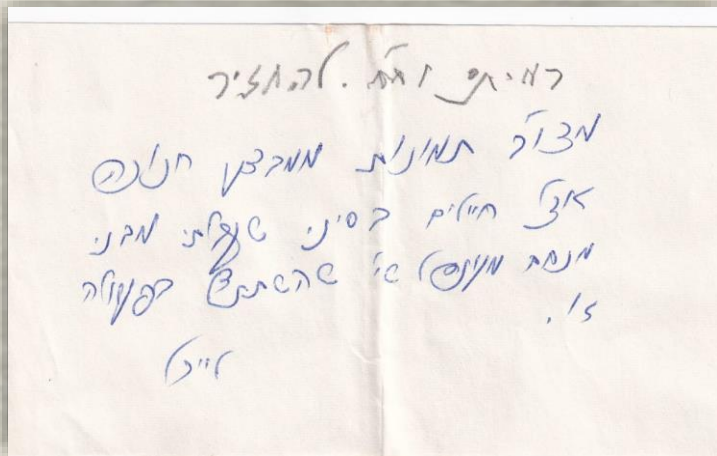 להחזיר.
מצו"ב תמונות ממבצע חנוכה
אצל חיילים בסיני שקבלתי מבני
מנחם מענדל שי' שהשתתף בפעולה
זו.